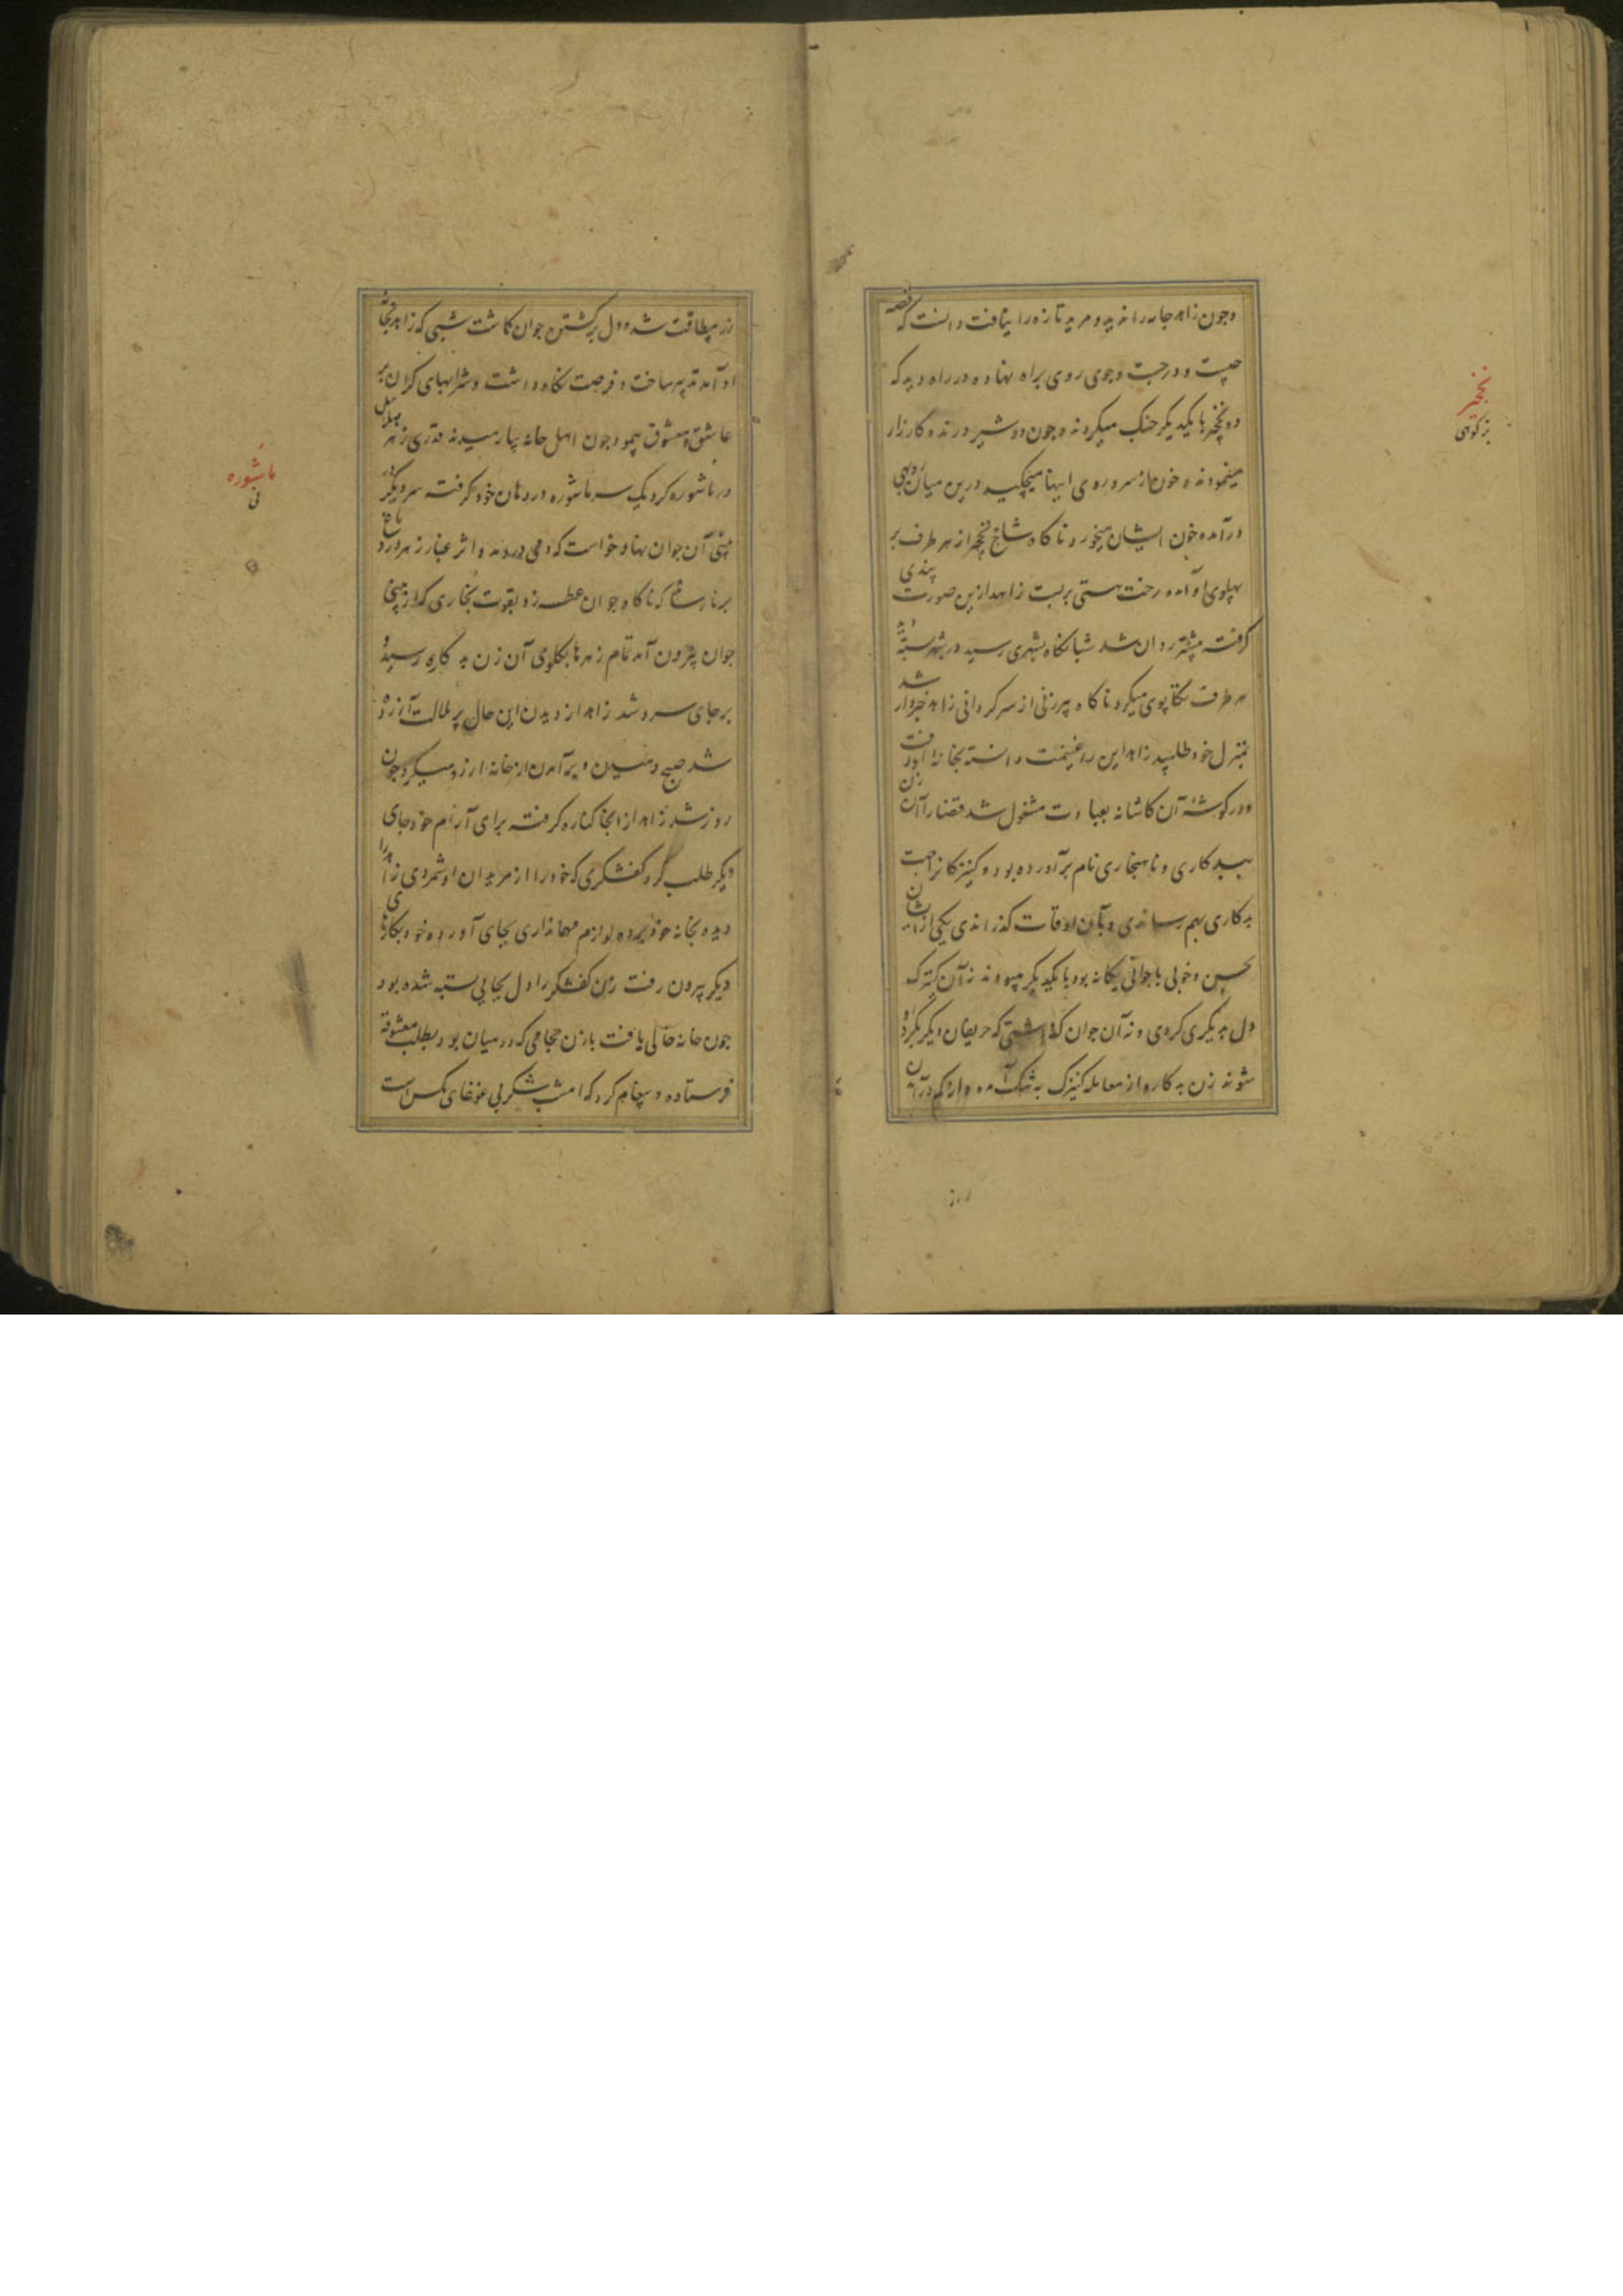 وچون زاهد جامه را ندید و مرید تازه را نیافت دانست که قصه
چیست و در جست و جوی روی براه نهاده در راه دید که
دو نخچیر با یکدیگر جنک میکردند و چون دو شیر درنده کارزار
مینمودند و خون از سر و روی اینها میچکید درین میان روبهی
درآمده خون ایشان میخورد ناکاه شاخ نخچیر از هر طرف بر
پهلوی او آمده رخت هستی بر بست زاهد ازین صورت پندی
کرفته پیشتر روان شد شبانکاه بشهری رسید در شهر بسته
هر طرف تکاپوی میکرد ناکاه پیرزنی از سرکردانی زاهد خبردار شد
بمنزل خود طلبید زاهد این را غنیمت دانسته بخانه او رفت
و در کوشهٔ آن کاشانه بعبادت مشغول شد قضا را آن زن
ببدکاری و ناهنجاری نام برآورده بود و کنیزکان از جهت
بدکاری بهم رساندی و بآن اوقات کذراندی یکی از ایشان
بحسن و خوبی با جوانی یکانه بود با یکدیکر میبودند نه آن کنیزک
دل بدیکری کردی و نه آن جوان کذاشتی که حریفان دیکر بکرد او
شوند زن بدکاره از معامله کنیزک به تنک آمده و از کم درآمدن
نخچیر
بز کوهی
زر بیطاقت شده دل بر کشتن جوان کماشت شبی که زاهد بخانه
او آمد تدبیر ساخت و فرصت نکاه داشت و شرابهای کران بر
عاشق و معشوق پیمود چون اهل خانه بیارمیدند قدری زهر هلاهل
در ماشوره کرد یک سر ماشوره در دهان خود کرفت سر دیکر در
بینی آن جوان نهاد و خواست که دمی در دمد و اثر غبار زهر در دماغ
برنا رساند که ناکاه جوان عطسه زد بقوت بخاری که از بینی
جوان بیرون آمد تمام زهرها بکلوی آن زن بدکاره رسید و
بر جای سرد شد زاهد از دیدن این حال پر ملالت آزرده
شد صبح دمیدن و برآمدن از خانه آرزو میکرد چون
روز شد زاهد از آنجا کناره کرفته برای آرام خود جای
دیکر طلب کرد کفشکری که خود را از مریدان او شمردی زاهد را
دیده بخانه خود برده لوازم مهمانداری بجای آورده خود بکارهای
دیکر بیرون رفت زن کفشکر را دل بجایی بسته شده بود
چون خانه خالی یافت بازن حجامی که در میان بود بطلب معشوقه
فرستاده و پیغام کرد که امشب شکر بی غوغای مکس است
ماشوره
نی